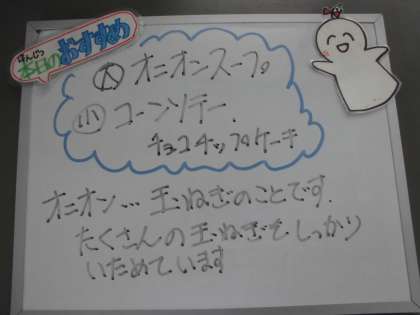 ほんじつ
本日のおすすめ
大 オニオンスープ。
小 コーンソテー.
チョコチップケーキ
オニオン… 玉ねぎのことです.
たくさんの玉ねぎをしっかり
いためています